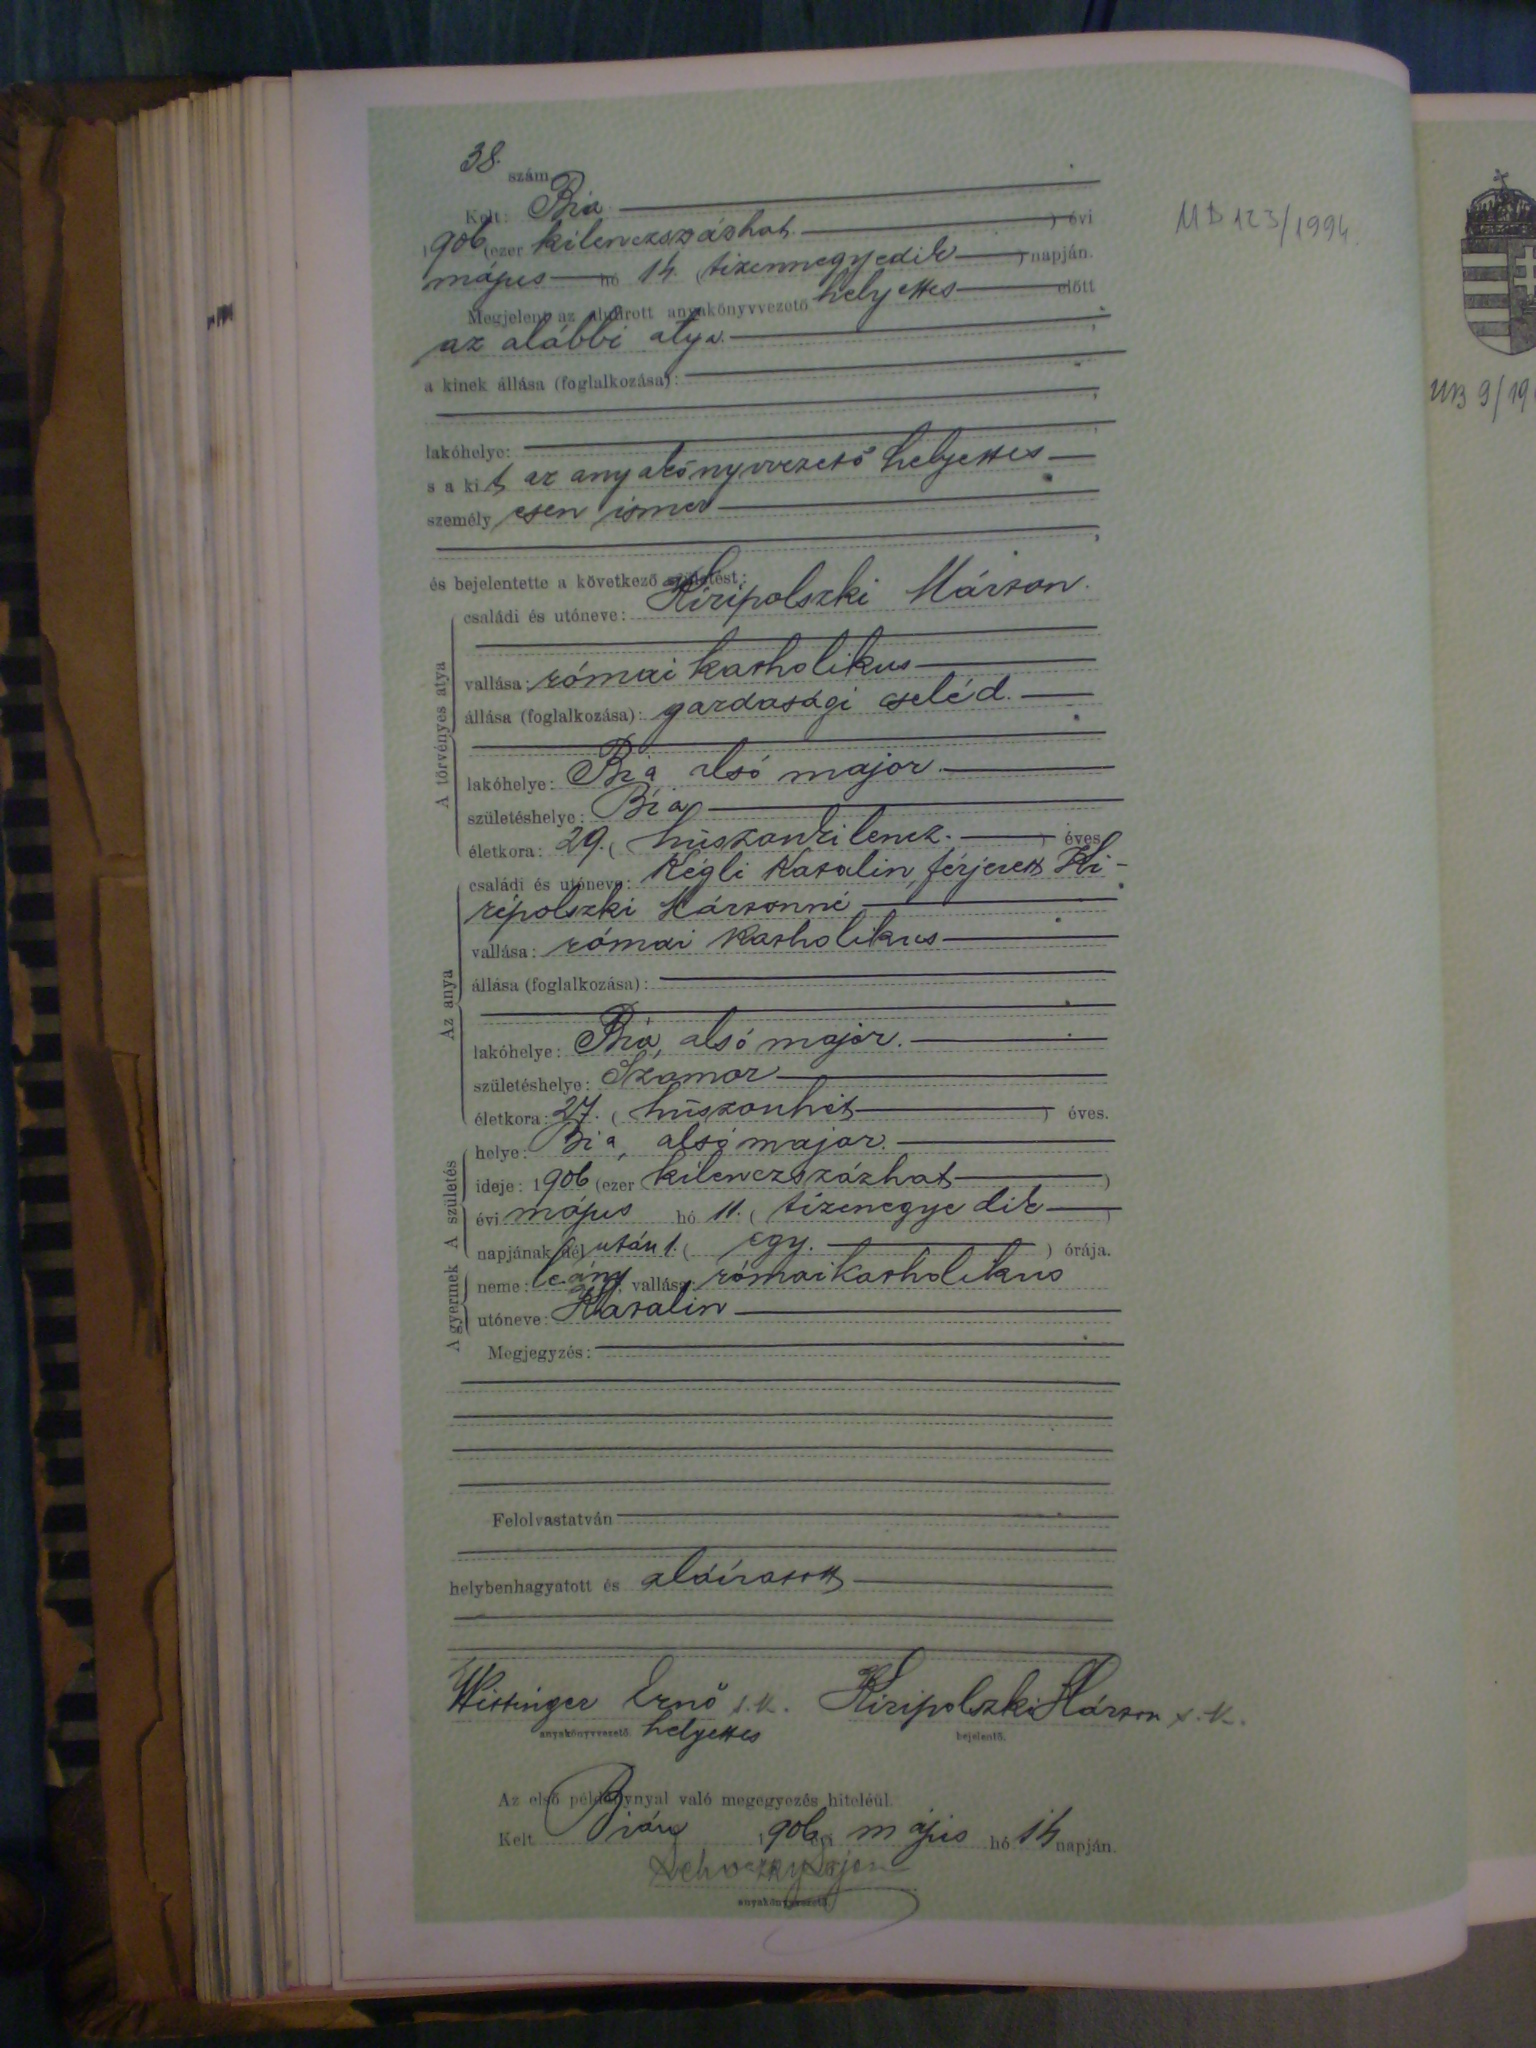 38. szám
MB 123/1994.
Kelt: Bia
1906 (ezer kilenczszázhat ) évi
május hó 14 (tizennegyedik ) napján.
Megjelent az alulírott anyakönyvvezető helyettes előtt
az alábbi atya
a kinek állása (foglalkozása):
lakóhelye:
s a kit az anyakönyvvezető helyettes
személyesen ismer
és bejelentette a következő születést:
A törvényes atya
családi és utóneve: Kiripolszki Márton.
vallása: római katholikus
állása (foglalkozása): gazdasági cseléd.
lakóhelye: Bia alsó major.
születéshelye: Bia
életkora: 29. ( huszonkilencz. ) éves.
Az anya
családi és utóneve: Kégli Katalin, férjezett Ki-
ripolszki Mártonné
vallása: római katholikus
állása (foglalkozása):
lakóhelye: Bia, alsó major.
születéshelye: Szomor
életkora: 27. ( huszonhét ) éves.
A születés
helye: Bia, alsó major.
ideje: 1906 (ezer kilenczszázhat )
évi május hó 11. ( tizenegyedik )
napjának dél után 1. ( egy. ) órája.
A gyermek
neme: leány vallása: római katholikus
utóneve: Katalin
Megjegyzés:
Felolvastatván
helybenhagyatott és aláíratott
Wittinger Ernő s.k. Kiripolszki Márton s.k.
anyakönyvvezető helyettes bejelentő.
Az első példánynyal való megegyezés hiteléül.
Kelt Bián 1906 évi május hó 14 napján.
anyakönyvvezető.